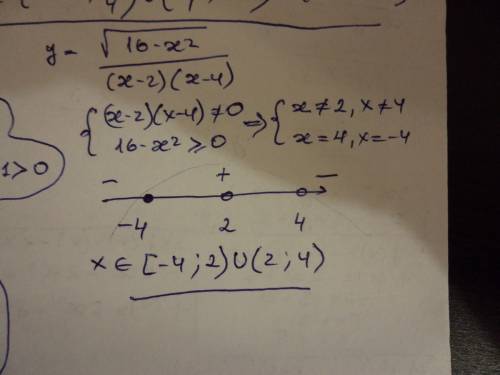 y = √(16-x²) / (x-2)(x-4)
{(x-2)(x-4) ≠ 0 => {x ≠ 2, x ≠ 4
16-x² ≥ 0 x = 4, x = -4
1 > 0
- + -
-4 2 4
x ∈ [-4; 2) ∪ (2; 4)